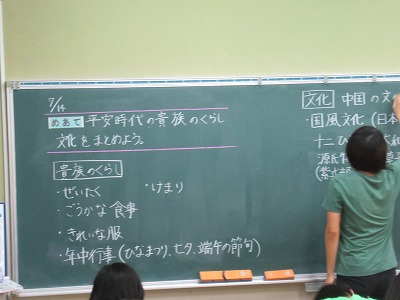 7/14
めあて 平安時代の貴族のくらし
文化をまとめよう。
貴族のくらし
・ぜいたく ・けまり
・ごうかな食事
・きれいな服
・年中行事(ひなまつり、七夕、端午の節句)
文化 中国の文
・国風文化(日本
十二ひ
源氏
(紫式部